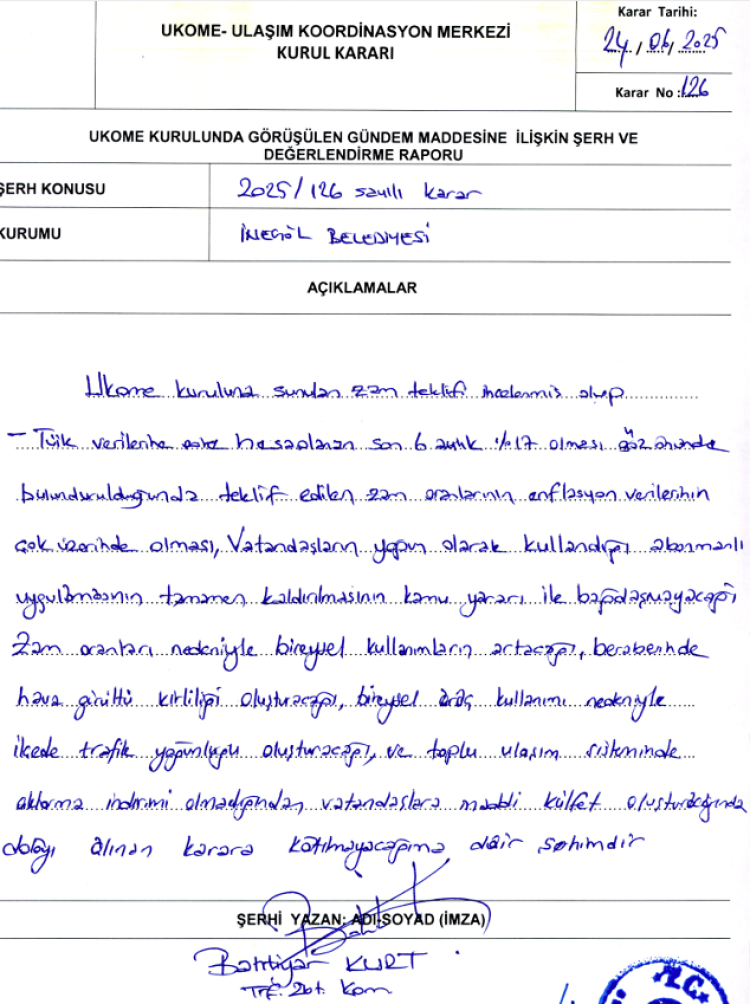 UKOME- ULAŞIM KOORDİNASYON MERKEZİ
KURUL KARARI
Karar Tarihi:
24/06/2025
Karar No :126
UKOME KURULUNDA GÖRÜŞÜLEN GÜNDEM MADDESİNE İLİŞKİN ŞERH VE
DEĞERLENDİRME RAPORU
ŞERH KONUSU
2025/126 sayılı karar
KURUMU
İNEGÖL BELEDİYESİ
AÇIKLAMALAR
Ukome kuruluna sunulan zam teklifi incelenmiş olup
- Tüik verilerine hesaplanan son 6 aylık %17 olması göz önünde
bulundurulduğunda teklif edilen zam oranlarının enflasyon verilerinin
çok üzerinde olması, Vatandaşların yoğun olarak kullandığı abonmanlı
uygulamasının tamamen kaldırılmasının kamu yararı ile bağdaşmayacağı
Zam oranları nedeniyle bireysel kullanımların artacağı, beraberinde
hava gürültü kirliliği oluşturacağı, bireysel araç kullanımı nedeniyle
ilçede trafik yoğunluğu oluşturacağı, ve toplu ulaşım sisteminde
aktarma indirimi olmadığından vatandaşlara maddi külfet oluşturacağında
dolayı alınan karara katılmayacağıma dair şerhimdir
ŞERHİ YAZAN: ADI-SOYAD (İMZA)
Bahtiyar KURT
Trf. Zbt. Kom
T.C.